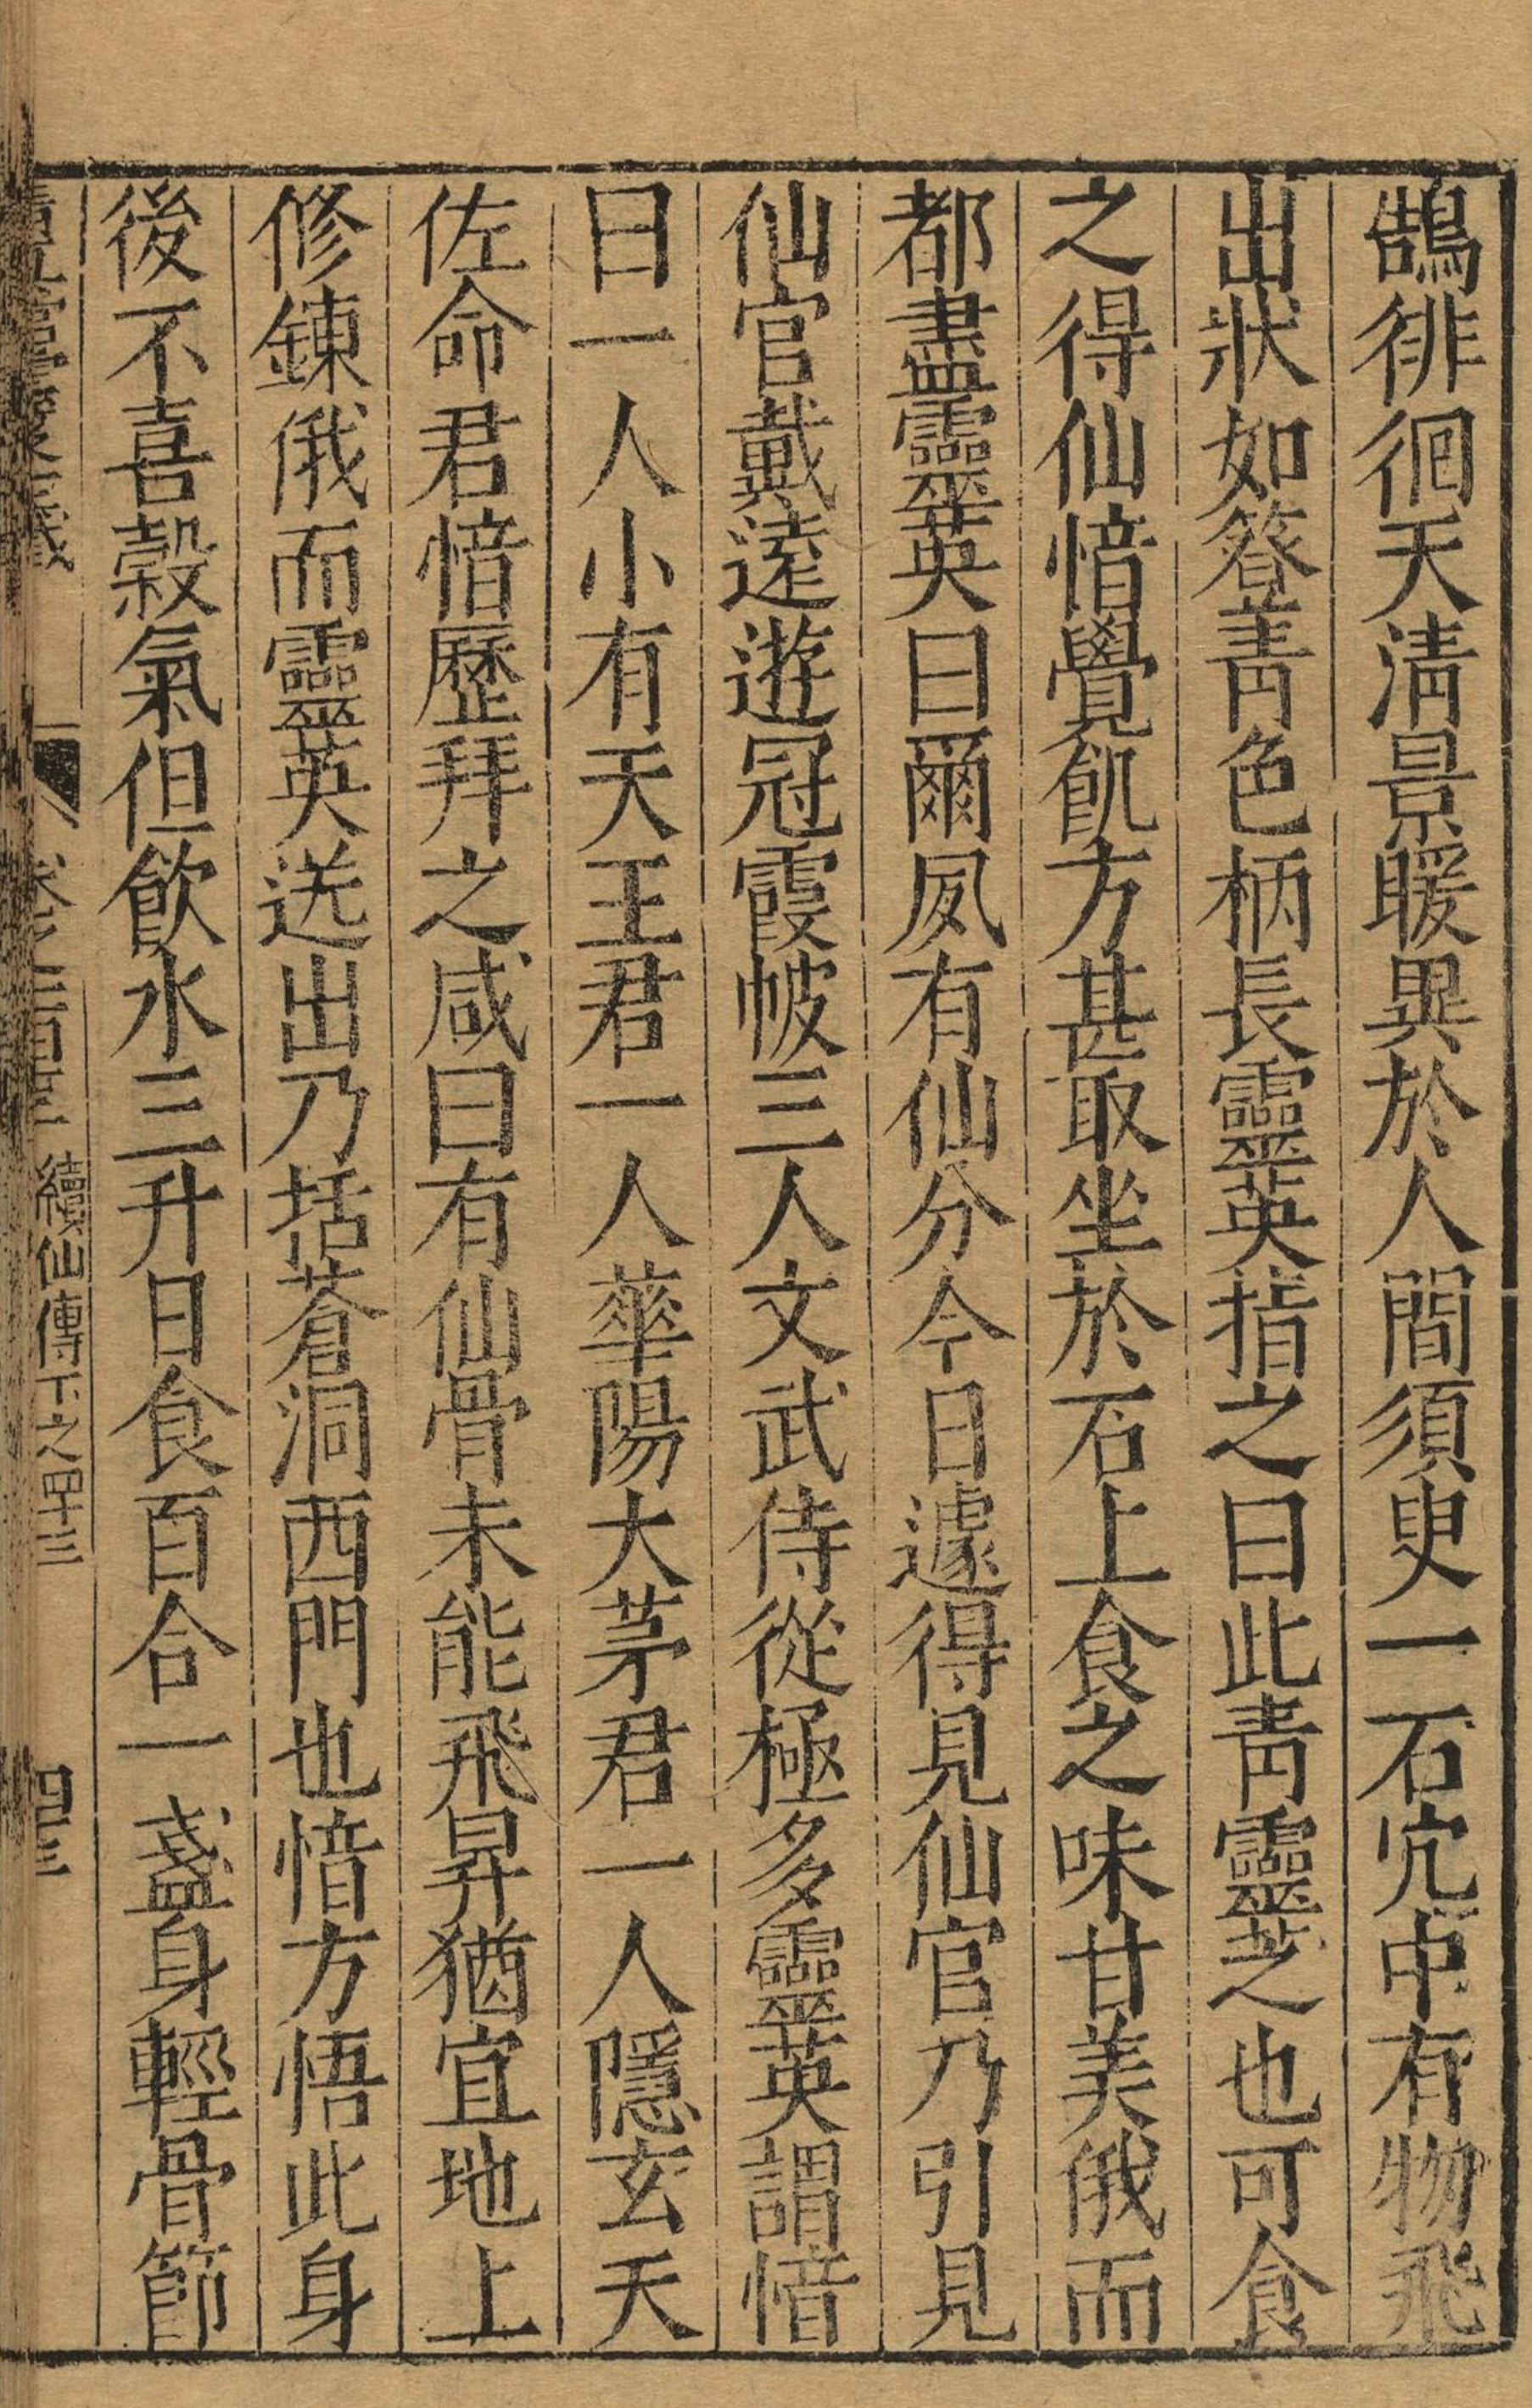 鵠徘徊天清景暖異於人間須臾一石穴中有物飛
出狀如簦青色柄長靈英指之曰此青靈芝也可食
之得仙愔覺飢方甚取坐於石上食之味甘美俄而
都盡靈英曰爾夙有仙分今日遽得見仙官乃引見
仙官戴遠遊冠霞帔三人文武侍從極多靈英謂愔
曰一人小有天王君一人華陽大茅君一人隱玄天
佐命君愔歷拜之咸曰有仙骨未能飛昇猶宜地上
修鍊俄而靈英送出乃括蒼洞西門也愔方悟此身
後不喜穀氣但飲水三升日食百合一盞身輕骨節
續仙傳下之四十三
四三